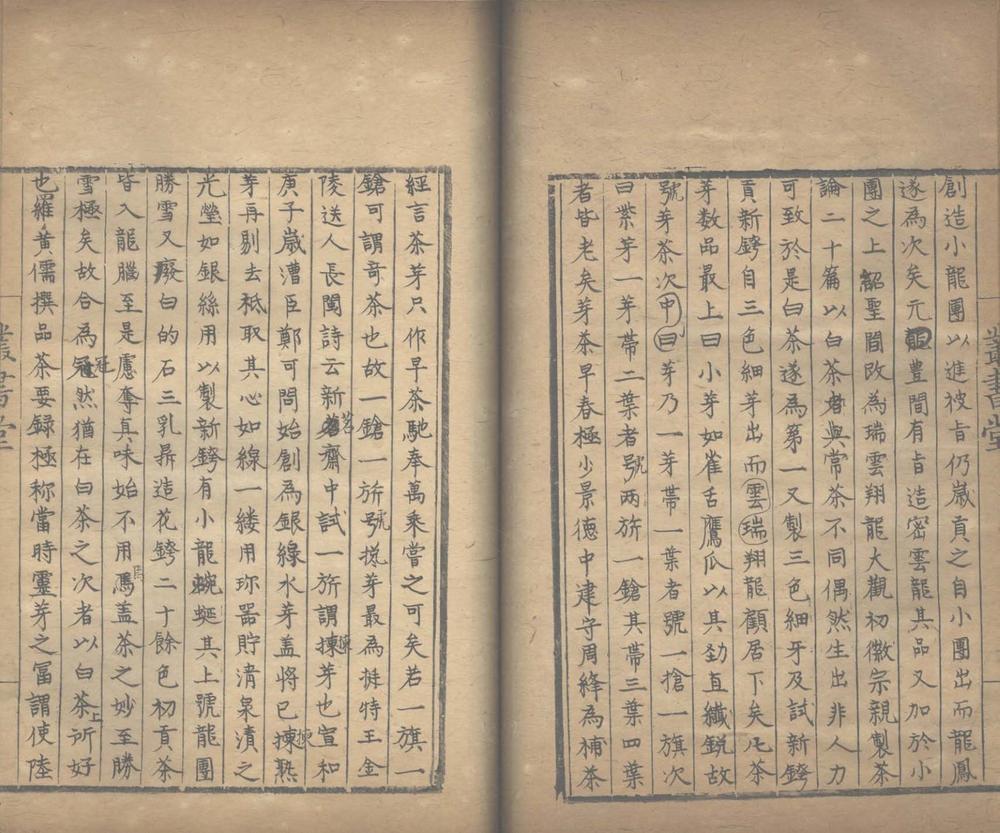 叢書堂
創造小龍團以進被旨仍歲貢之自小團出而龍鳳
遂為次矣元豐間有旨造密雲龍其品又加於小
團之上紹聖間改為瑞雲翔龍大觀初徽宗親製茶
論二十篇以白茶者與常茶不同偶然生出非人力
可致於是白茶遂為第一又製三色細牙及試新銙
貢新銙自三色細芽出而雲瑞翔龍顧居下矣凡茶
芽数品最上曰小芽如雀舌鷹瓜以其勁直纖鋭故
號芽茶次中曰芽乃一芽帶一葉者號一搶一旗次
曰紫芽一芽帶二葉者號兩旂一鎗其帶三葉四葉
者皆老矣芽茶早春極少景德中建守周絳為補茶
經言茶芽只作早茶馳奉萬乘嘗之可矣若一旗一
鎗可謂奇茶也故一鎗一旂號揀芽最為挺特王金
陵送人長閩詩云新茗齋中試一旂謂揀芽也宣和
庚子歲漕臣鄭可問始創為銀線水芽盖將已揀熟
芽再剔去秪取其心如線一縷用珎器貯清泉漬之
光瑩如銀絲用以製新銙有小龍蜿蜒其上號龍團
勝雪又廢白的石三乳鼎造花銙二十餘色初貢茶
皆入龍腦至是慮奪真味始不用焉盖茶之妙至勝
雪極矣故合為冠然猶在白茶之次者以白茶上所好
也羅黄儒撰品茶要録極称當時靈芽之冨謂使陸
叢書堂